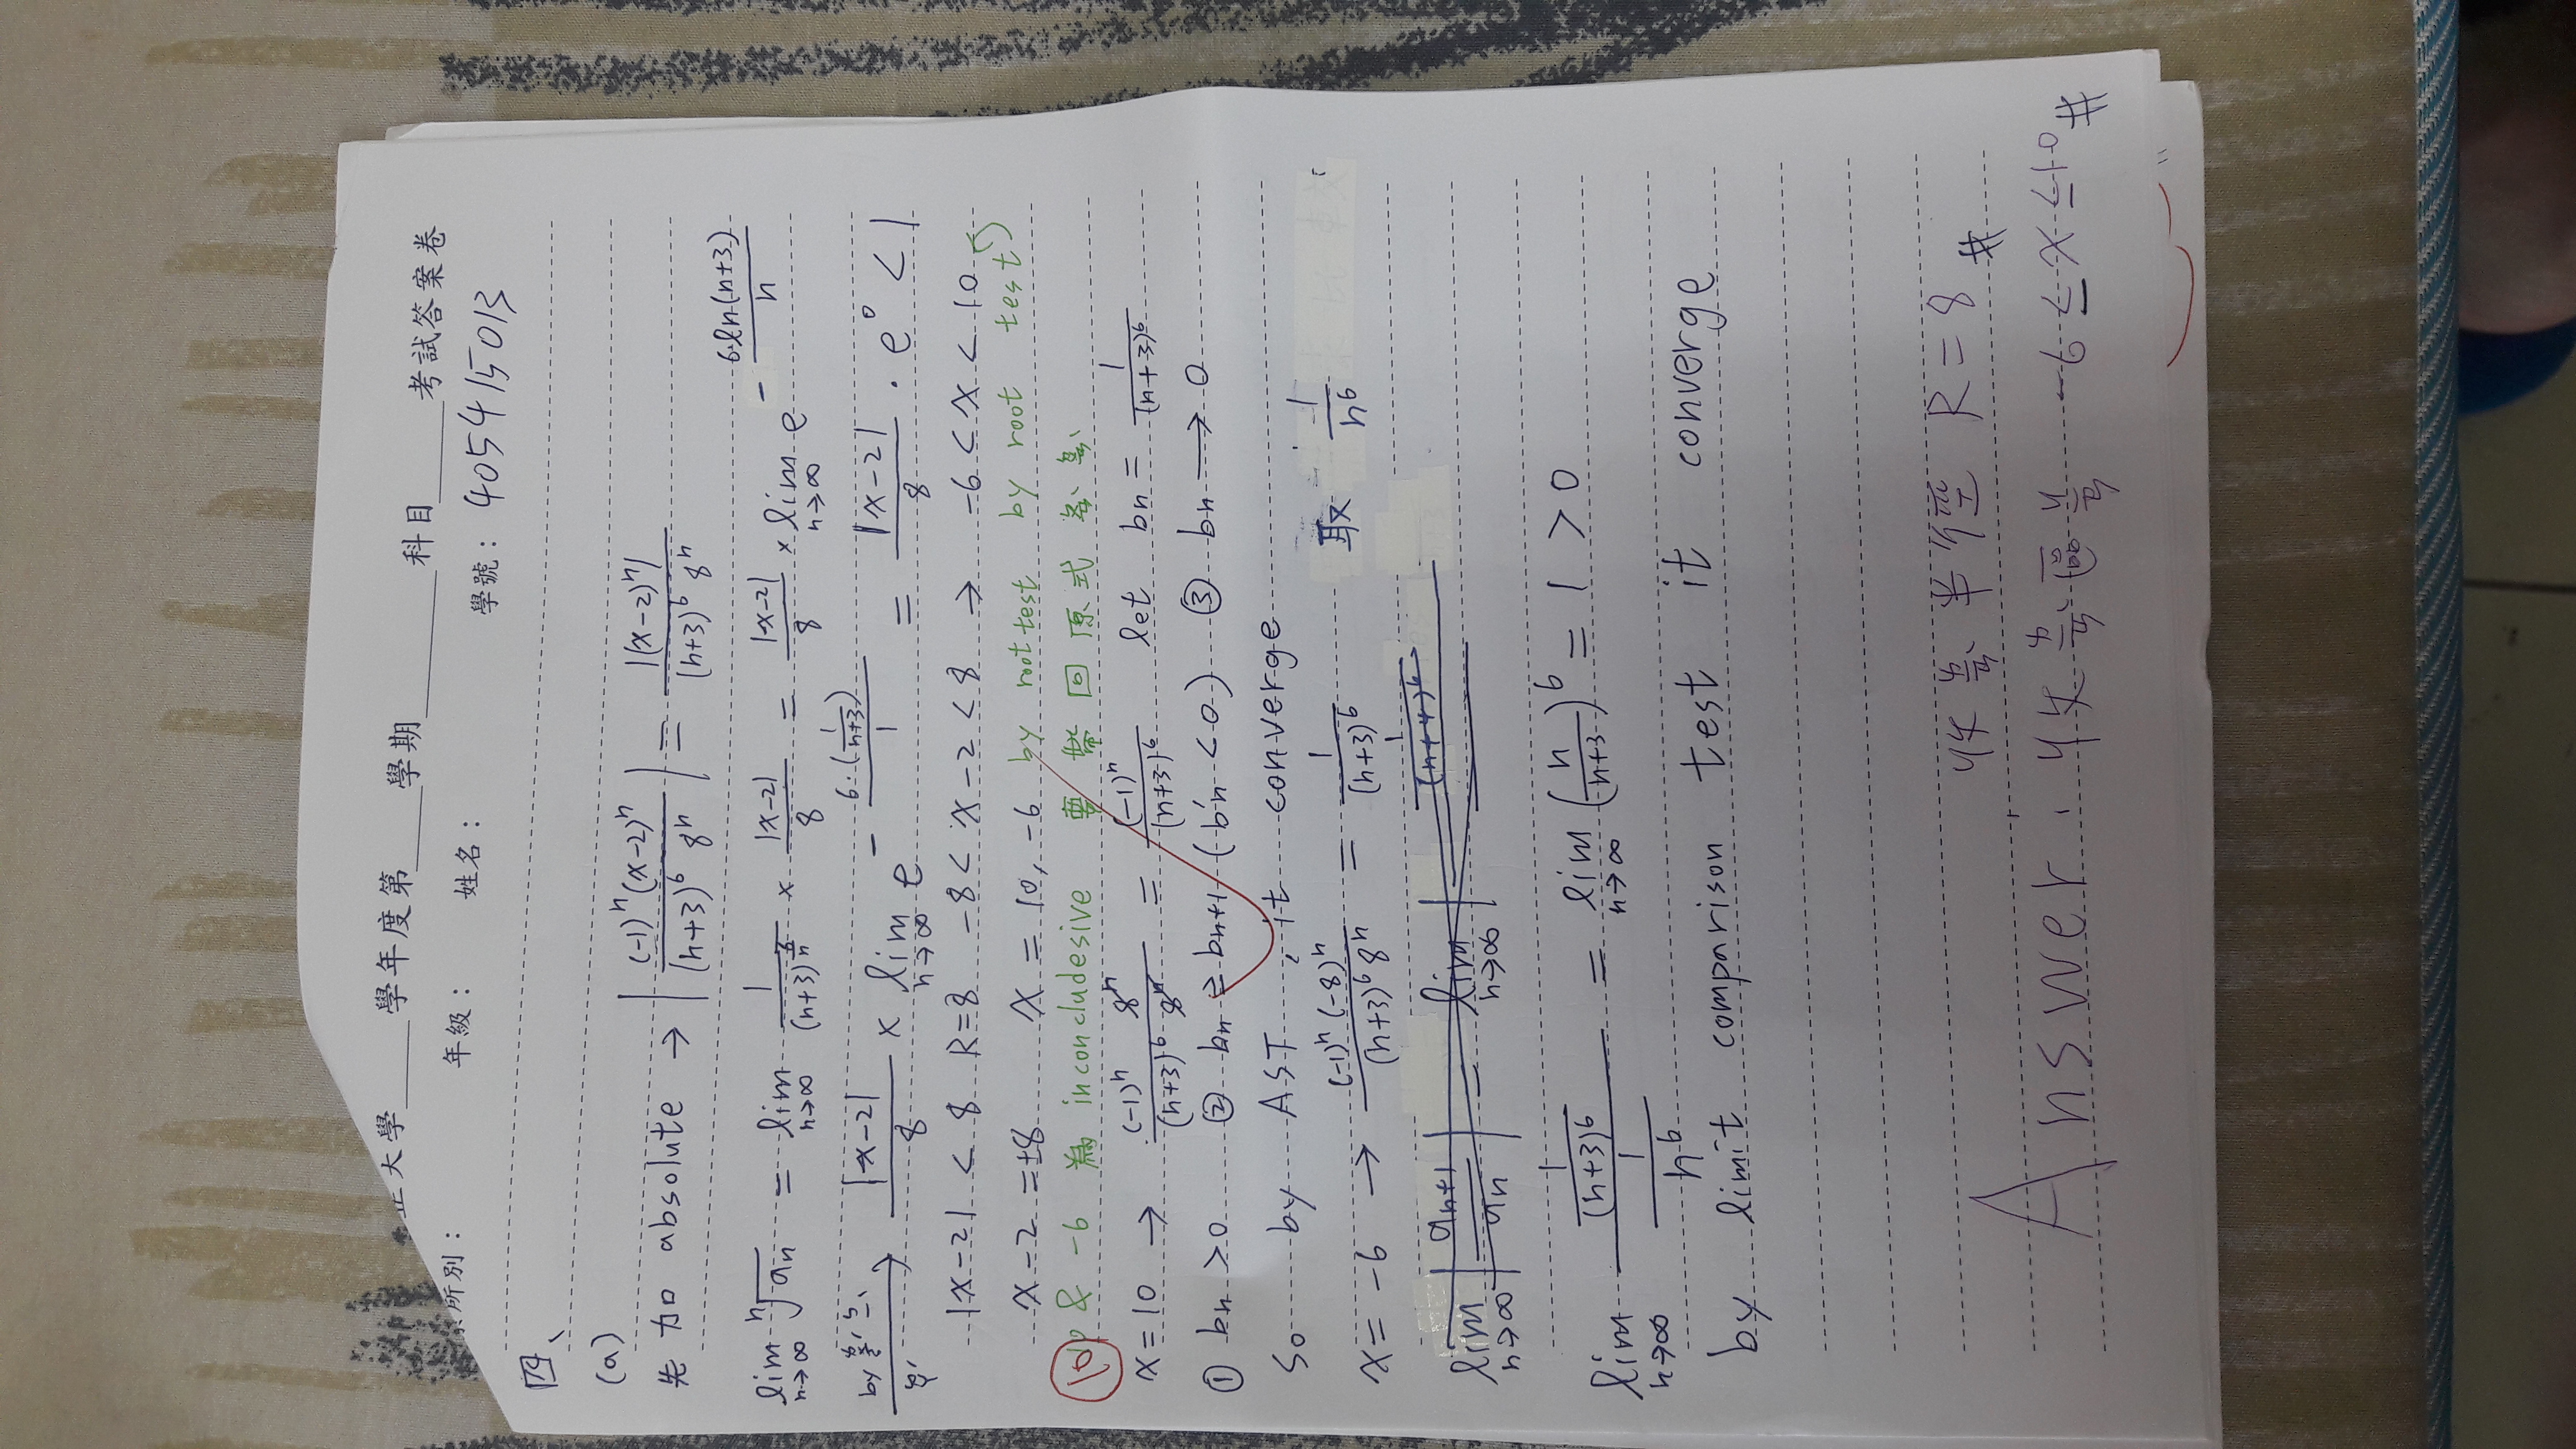 正大學 學年度第 學期 科目 考試答案卷
所別： 年級： 姓名： 學號： 405415013
四、
(a)
先加 absolute → |(-1)^n (x-2)^n / (n+3)^6 8^n| = |(x-2)^n| / (n+3)^6 8^n
lim n→∞ ⁿ√an = lim n→∞ 1/(n+3)^(6/n) × |x-2|/8 = |x-2|/8 × lim n→∞ e^(-6·ln(n+3)/n)
by |x-2|/8 × lim n→∞ e^(-6·(1/(n+3))/1) = |x-2|/8 · e^0 < 1
|x-2| < 8 R=8 -8 < x-2 < 8 → -6 < x < 10
x-2 = ±8 x = 10, -6 by root test by root test
10 & -6 為 inconcludesive 要帶回原式
x=10 → (-1)^n 8^n / (n+3)^6 8^n = (-1)^n / (n+3)^6 let bn = 1/(n+3)^6
① bn > 0 ② bn ≥ bn+1 (b'n < 0) ③ bn → 0
So by AST, it converge
x = -6 → (-1)^n (-8)^n / (n+3)^6 8^n = 1/(n+3)^6 取 1/n^6
lim n→∞ |an+1 / an| = lim n→∞ | 1/(n+4)^6
lim n→∞ (1/(n+3)^6) / (1/n^6) = lim n→∞ (n/(n+3))^6 = 1 > 0
by limit comparison test it converge
收斂半徑 R=8 #
Answer: 收斂區間 -6 ≤ x ≤ 10 #